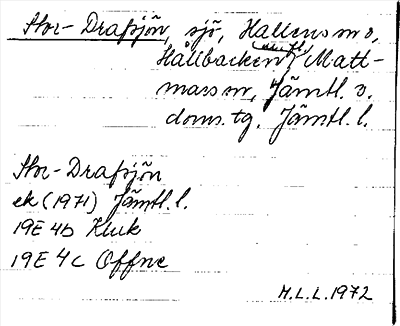 Stor-Drafsjön, sjö, Hallens sn o.
Hallbacken, Matt-
mars sn, Jämtl. o.
doms. tg. Jämtl. l.
Stor-Drafsjön
ek (1971) Jämtl. l.
19E 4b Kluk
19E 4c Offne
M.L.L. 1972